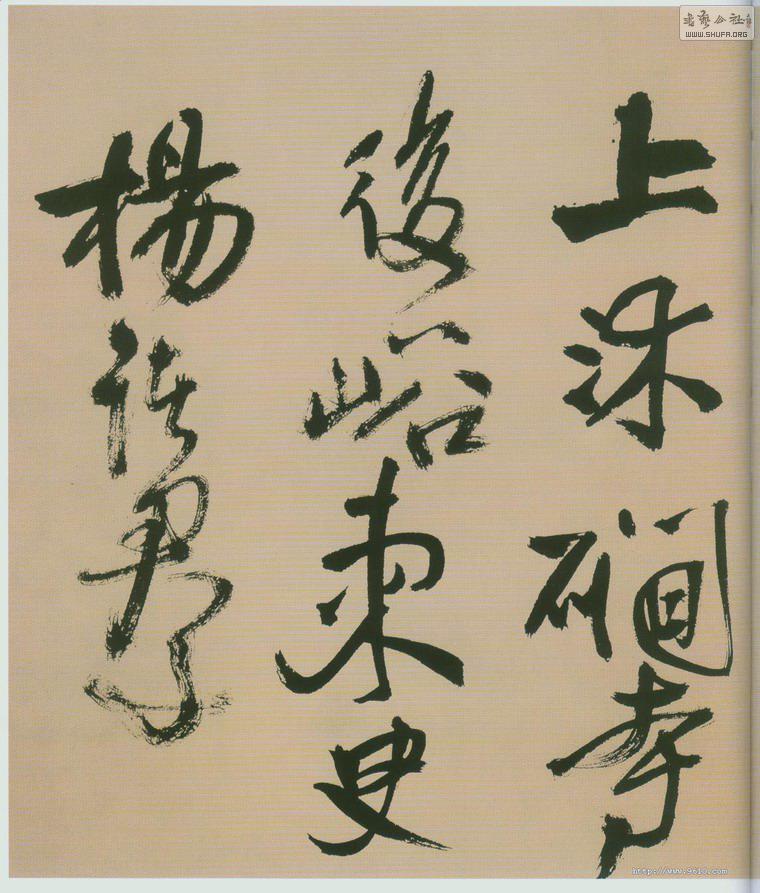 上沐㵎寺
後峪東叟
楊
書藝公社
WWW.SHUFA.ORG
http://www.9610.com